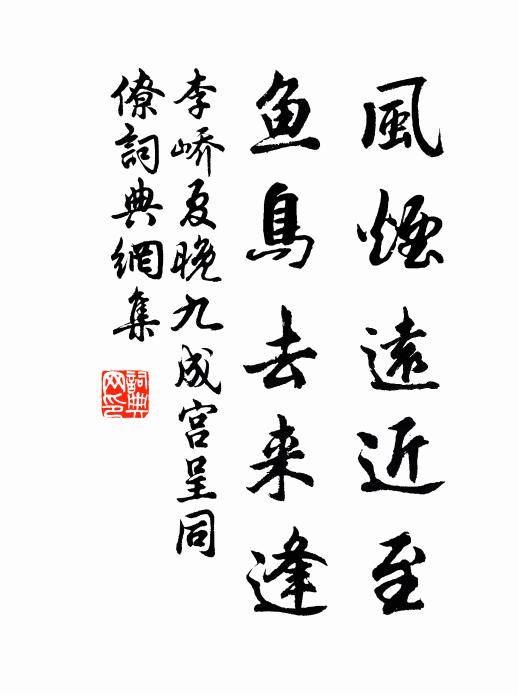 風煙遠近至
鱼鳥去来逢
李嶠夏晚九成宫呈同
僚詞典網集
詞典
网印